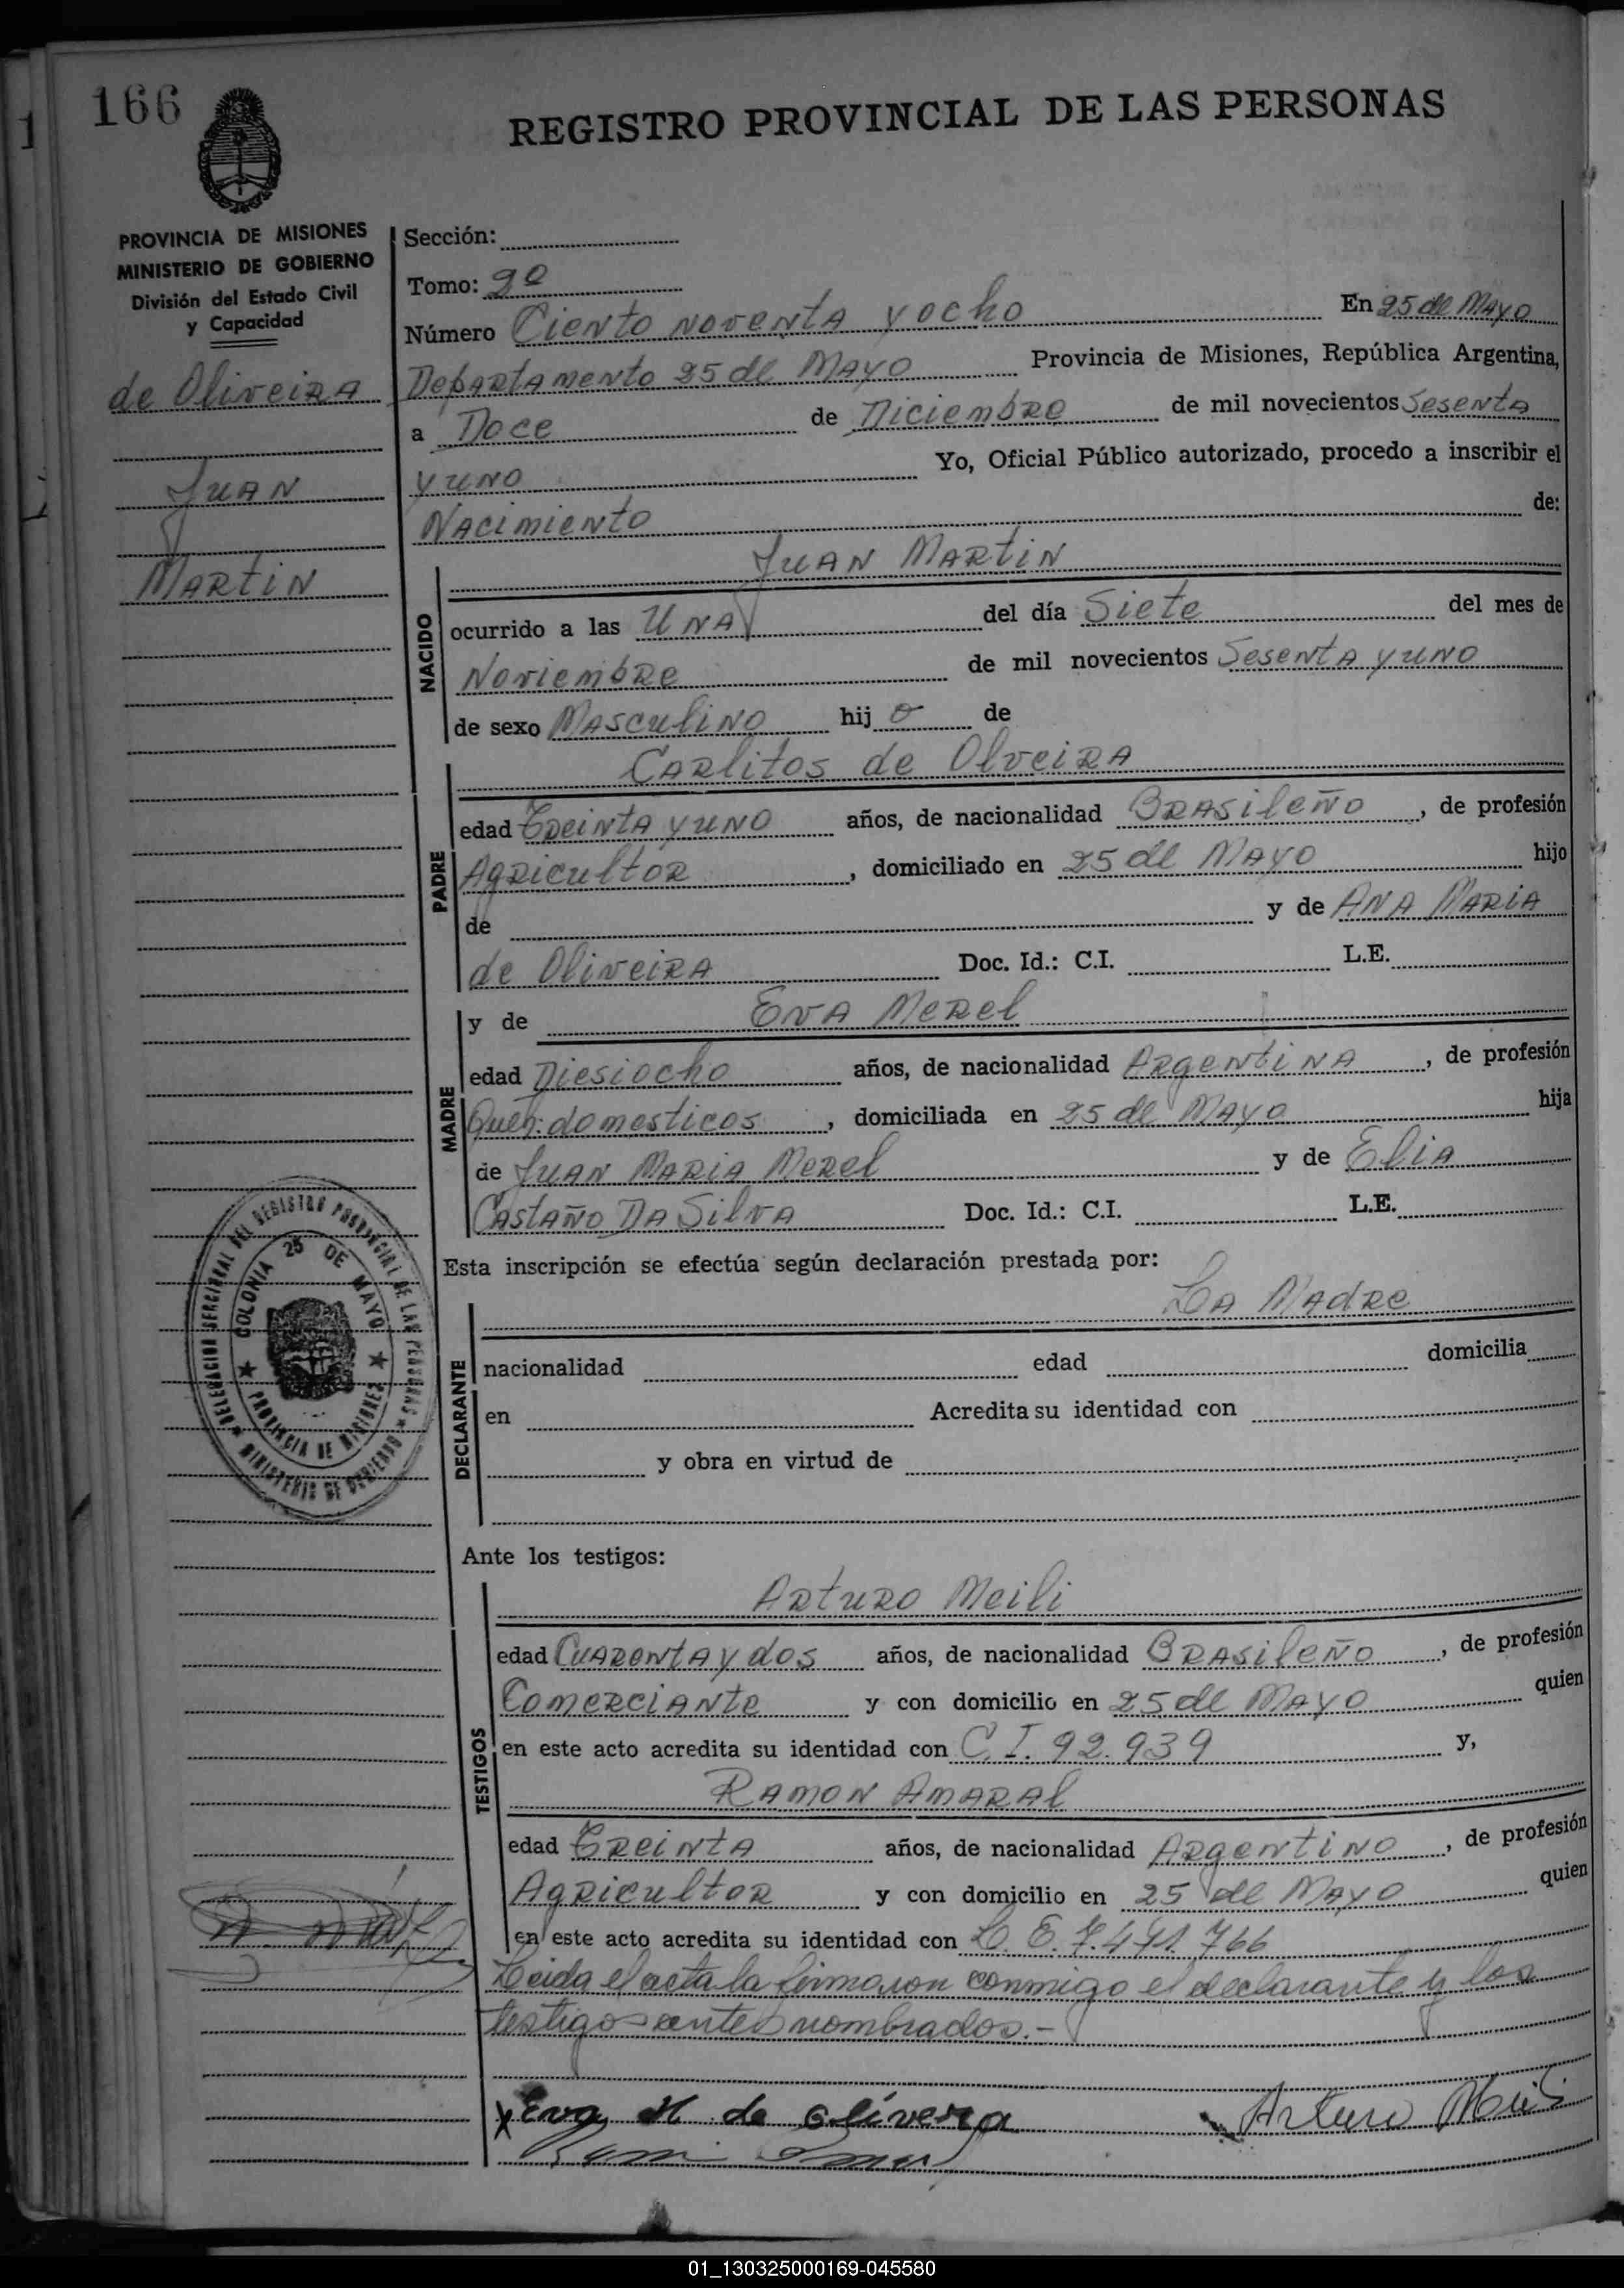 166
REGISTRO PROVINCIAL DE LAS PERSONAS
PROVINCIA DE MISIONES
MINISTERIO DE GOBIERNO
División del Estado Civil
y Capacidad
de Oliveira
Juan
Martin
Sección:
Tomo: 2º
Número Ciento noventa y ocho En 25 de Mayo
Departamento 25 de Mayo Provincia de Misiones, República Argentina,
a Doce de Diciembre de mil novecientos Sesenta
y uno Yo, Oficial Público autorizado, procedo a inscribir el
Nacimiento de:
Juan Martin
NACIDO
ocurrido a las Una del día Siete del mes de
Noviembre de mil novecientos Sesenta y uno
de sexo Masculino hijo de
Carlitos de Olveira
PADRE
edad Treinta y uno años, de nacionalidad Brasileño, de profesión
Agricultor, domiciliado en 25 de Mayo hijo
de y de Ana Maria
de Oliveira Doc. Id.: C.I. L.E.
y de Eva Merel
MADRE
edad Diesiocho años, de nacionalidad Argentina, de profesión
Queh: domesticos, domiciliada en 25 de Mayo hija
de Juan Maria Merel y de Elia
Castaño Da Silva Doc. Id.: C.I. L.E.
Esta inscripción se efectúa según declaración prestada por:
La Madre
DECLARANTE
nacionalidad edad domicilia
en Acredita su identidad con
y obra en virtud de
DELEGACION SECCIONAL DEL REGISTRO PROVINCIAL DE LAS PERSONAS
MINISTERIO DE GOBIERNO
COLONIA 25 DE MAYO
PROVINCIA DE MISIONES
Ante los testigos:
Arturo Meili
TESTIGOS
edad Cuarenta y dos años, de nacionalidad Brasileño, de profesión
Comerciante y con domicilio en 25 de Mayo quien
en este acto acredita su identidad con C. I. 92.939 y,
Ramon Amaral
edad Treinta años, de nacionalidad Argentino, de profesión
Agricultor y con domicilio en 25 de Mayo quien
en este acto acredita su identidad con L. E. 7.471.766
Leida el acta la firmaron conmigo el declarante y los
testigos antes nombrados.-
x Eva M de olivera Arturo Meili
01_130325000169-045580